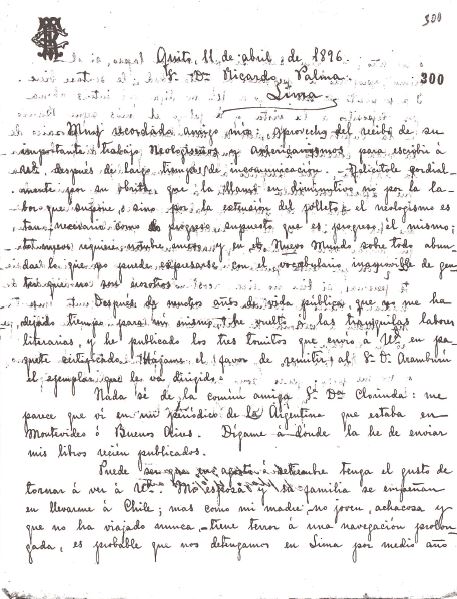 300
Quito, 11 de abril de 1896.
Sr. Dn. Ricardo Palma.
300
Lima
Muy recordado amigo mío: aprovecho del recibo de su
importante trabajo Neologismos y Americanismos para escribir á
Ud. después de largo tiempo de incomunicación. Felicítole cordial-
mente por su obrita, que la llamo en diminutivo no por la la-
bor que supone, sino por la extensión del folleto: el neologismo es
tan necesario como el progreso, supuesto que es progreso él mismo;
lo nuevo requiere nombre nuevo, y en el Nuevo Mundo sobre todo abun-
da lo que no puede expresarse con el vocabulario inamovible de gen-
tes que no son nosotros.
Después de muchos años de vida pública, que no me ha
dejado tiempo para mí mismo, he vuelto á las tranquilas labores
literarias, y he publicado los tres tomitos que envío á Ud. en pa-
quete certificado. Hágame el favor de remitir al Sr. D. Aramburú
el ejemplar que le va dirigido.
Nada sé de la común amiga Sra. Da. Clorinda: me
parece que vi en un periódico de la Argentina que estaba en
Montevideo ó Buenos Aires. Dígame á dónde la he de enviar
mis libros recién publicados.
Puede ser que en agosto á setiembre tenga el gusto de
tornar á ver á Ud. Mi esposa y su familia se empeñan
en llevarme á Chile; mas como mi madre no joven, achacosa y
que no ha viajado nunca tiene terror á una navegación prolon-
gada, es probable que nos detengamos en Lima por medio año